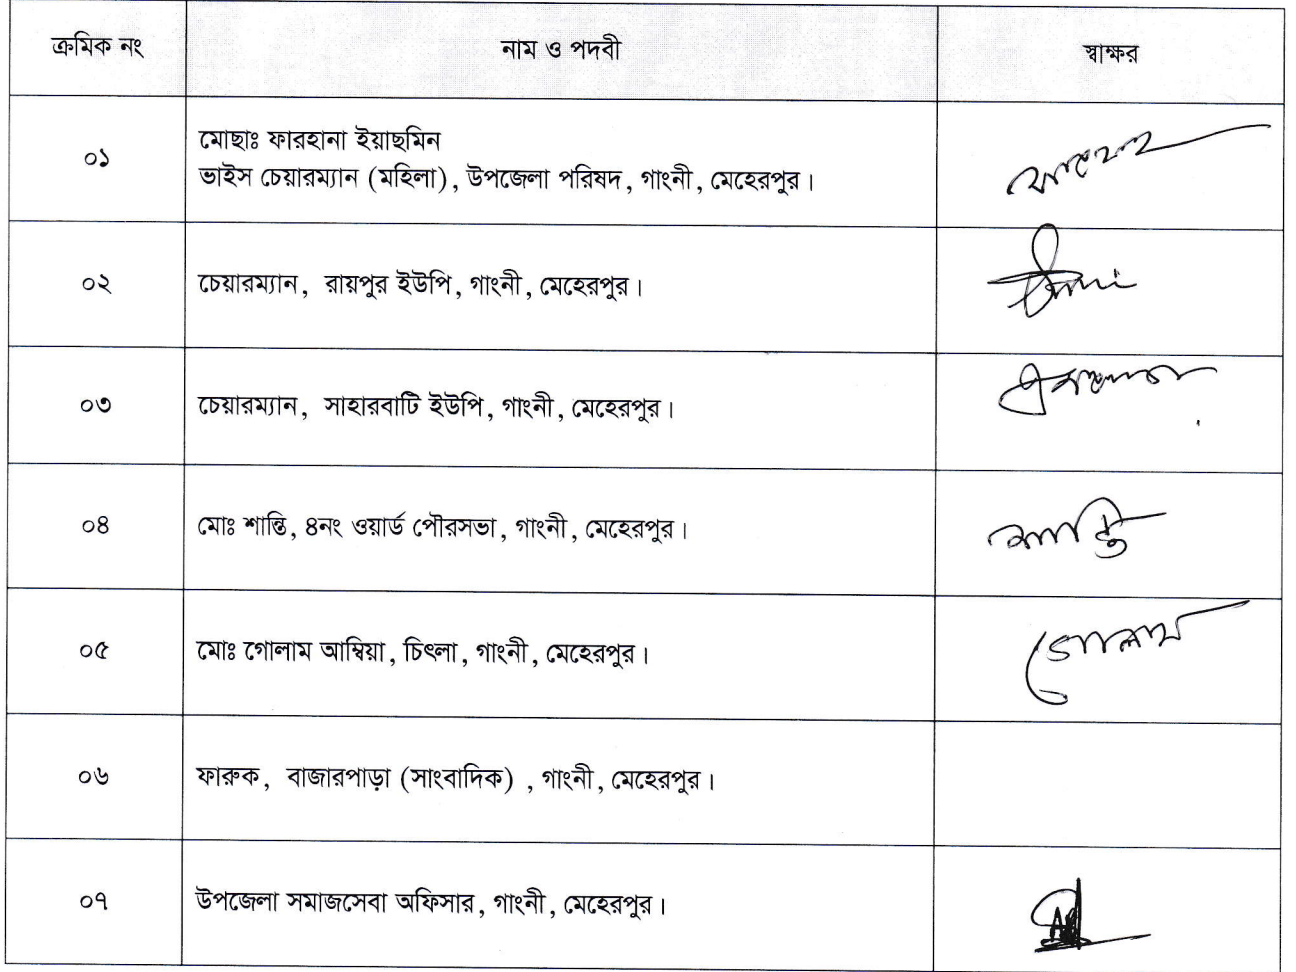 ক্রমিক নং নাম ও পদবী স্বাক্ষর
০১ মোছাঃ ফারহানা ইয়াছমিন
ভাইস চেয়ারম্যান (মহিলা), উপজেলা পরিষদ, গাংনী, মেহেরপুর।
০২ চেয়ারম্যান, রায়পুর ইউপি, গাংনী, মেহেরপুর।
০৩ চেয়ারম্যান, সাহারবাটি ইউপি, গাংনী, মেহেরপুর।
০৪ মোঃ শান্তি, ৪নং ওয়ার্ড পৌরসভা, গাংনী, মেহেরপুর। শান্তি
০৫ মোঃ গোলাম আম্বিয়া, চিৎলা, গাংনী, মেহেরপুর। গোলাম
০৬ ফারুক, বাজারপাড়া (সাংবাদিক) , গাংনী, মেহেরপুর।
০৭ উপজেলা সমাজসেবা অফিসার, গাংনী, মেহেরপুর।